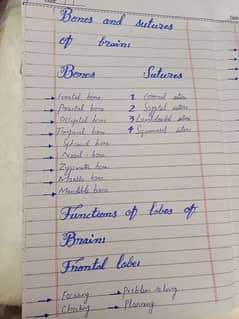 Bones and sutures
of brain
Bones Sutures
Frontal bone 1 Coronal suture
Parietal bone 2 Sagittal suture
Occipital bone 3 Lambdoidal suture
Temporal bone 4 Squamatal suture
Sphenoid bone
Nasal bone
Zygomatic bone
Maxilla bone
Mandible bone
Functions of lobes of
Brain
Frontal lobes
Focusing Problem solving
Planning